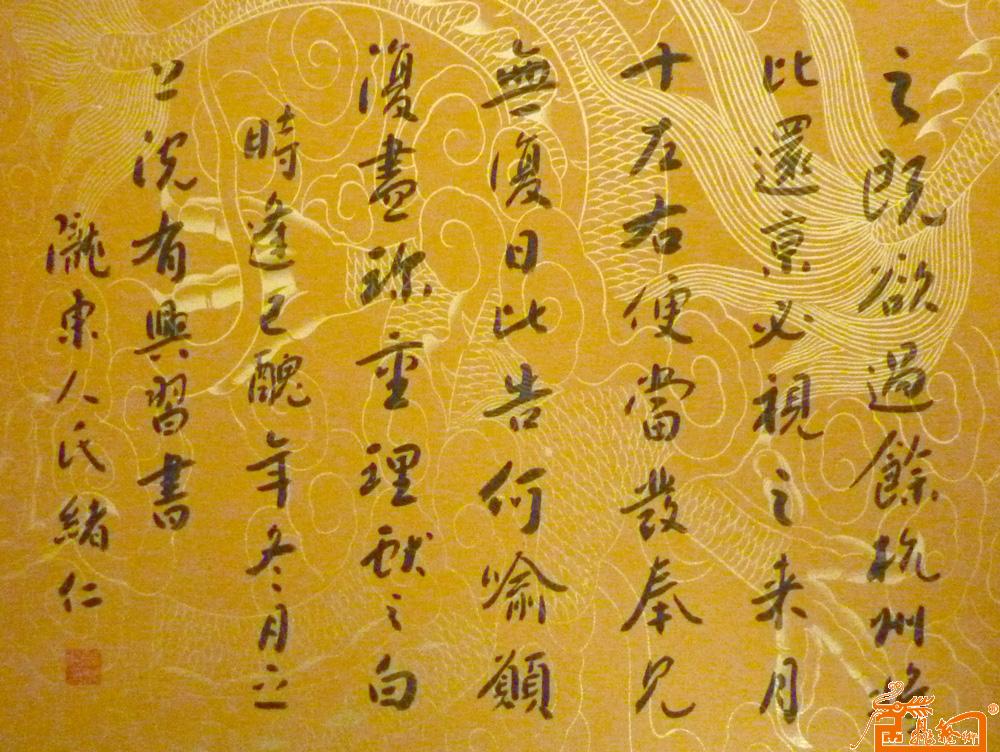 之既欲過餘杭州將
比還京必視之来月
十左右便當發奉見
無復日比告何喻願
復盡珎重理獻之白
時逢己醜年冬月
沅有興習書
隴東人氏緒仁